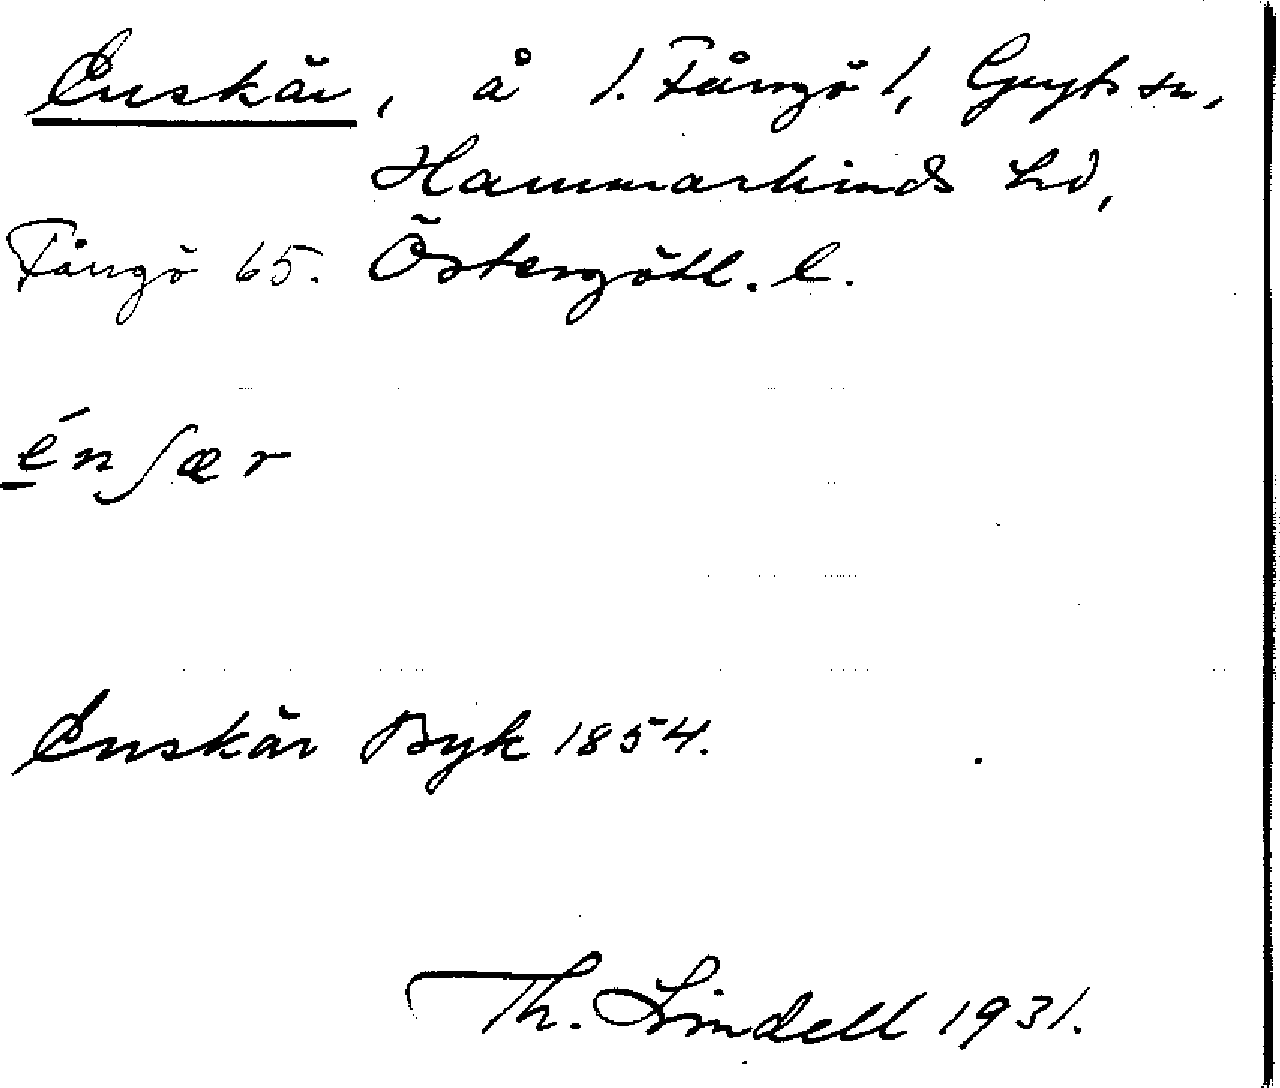 Enskär, å /. Fångö /, Gryts sn,
Hammarkinds hd,
Fångö 65. Östergötl. l.
énʃær
Enskär Byk 1854.
Th. Lindell 1931.